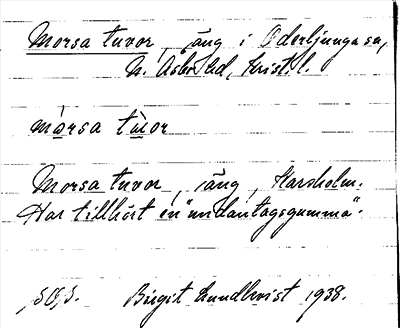 Morsa tuvor, äng i Oderljunga sn,
N. Åsbo hd, Krist. l.
mòrsa tùor
Morsa tuvor, äng, Harsholm.
Har tillhört en "undantagsgumma".
Birgit Lundkvist 1938.